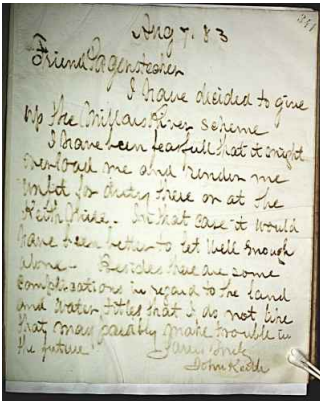 341
Aug 7. 83
Friend Pagenstecher
I have decided to give
up the Millas River scheme
I have been fearfull that it might
overload me and render me
unfit for duty there or at the
Keith . In that case it would
have been better to let well enough
alone - Besides there are some
complications in regard to the land
and water titles that I do not like
that may possibly make trouble in
the future
John Keith